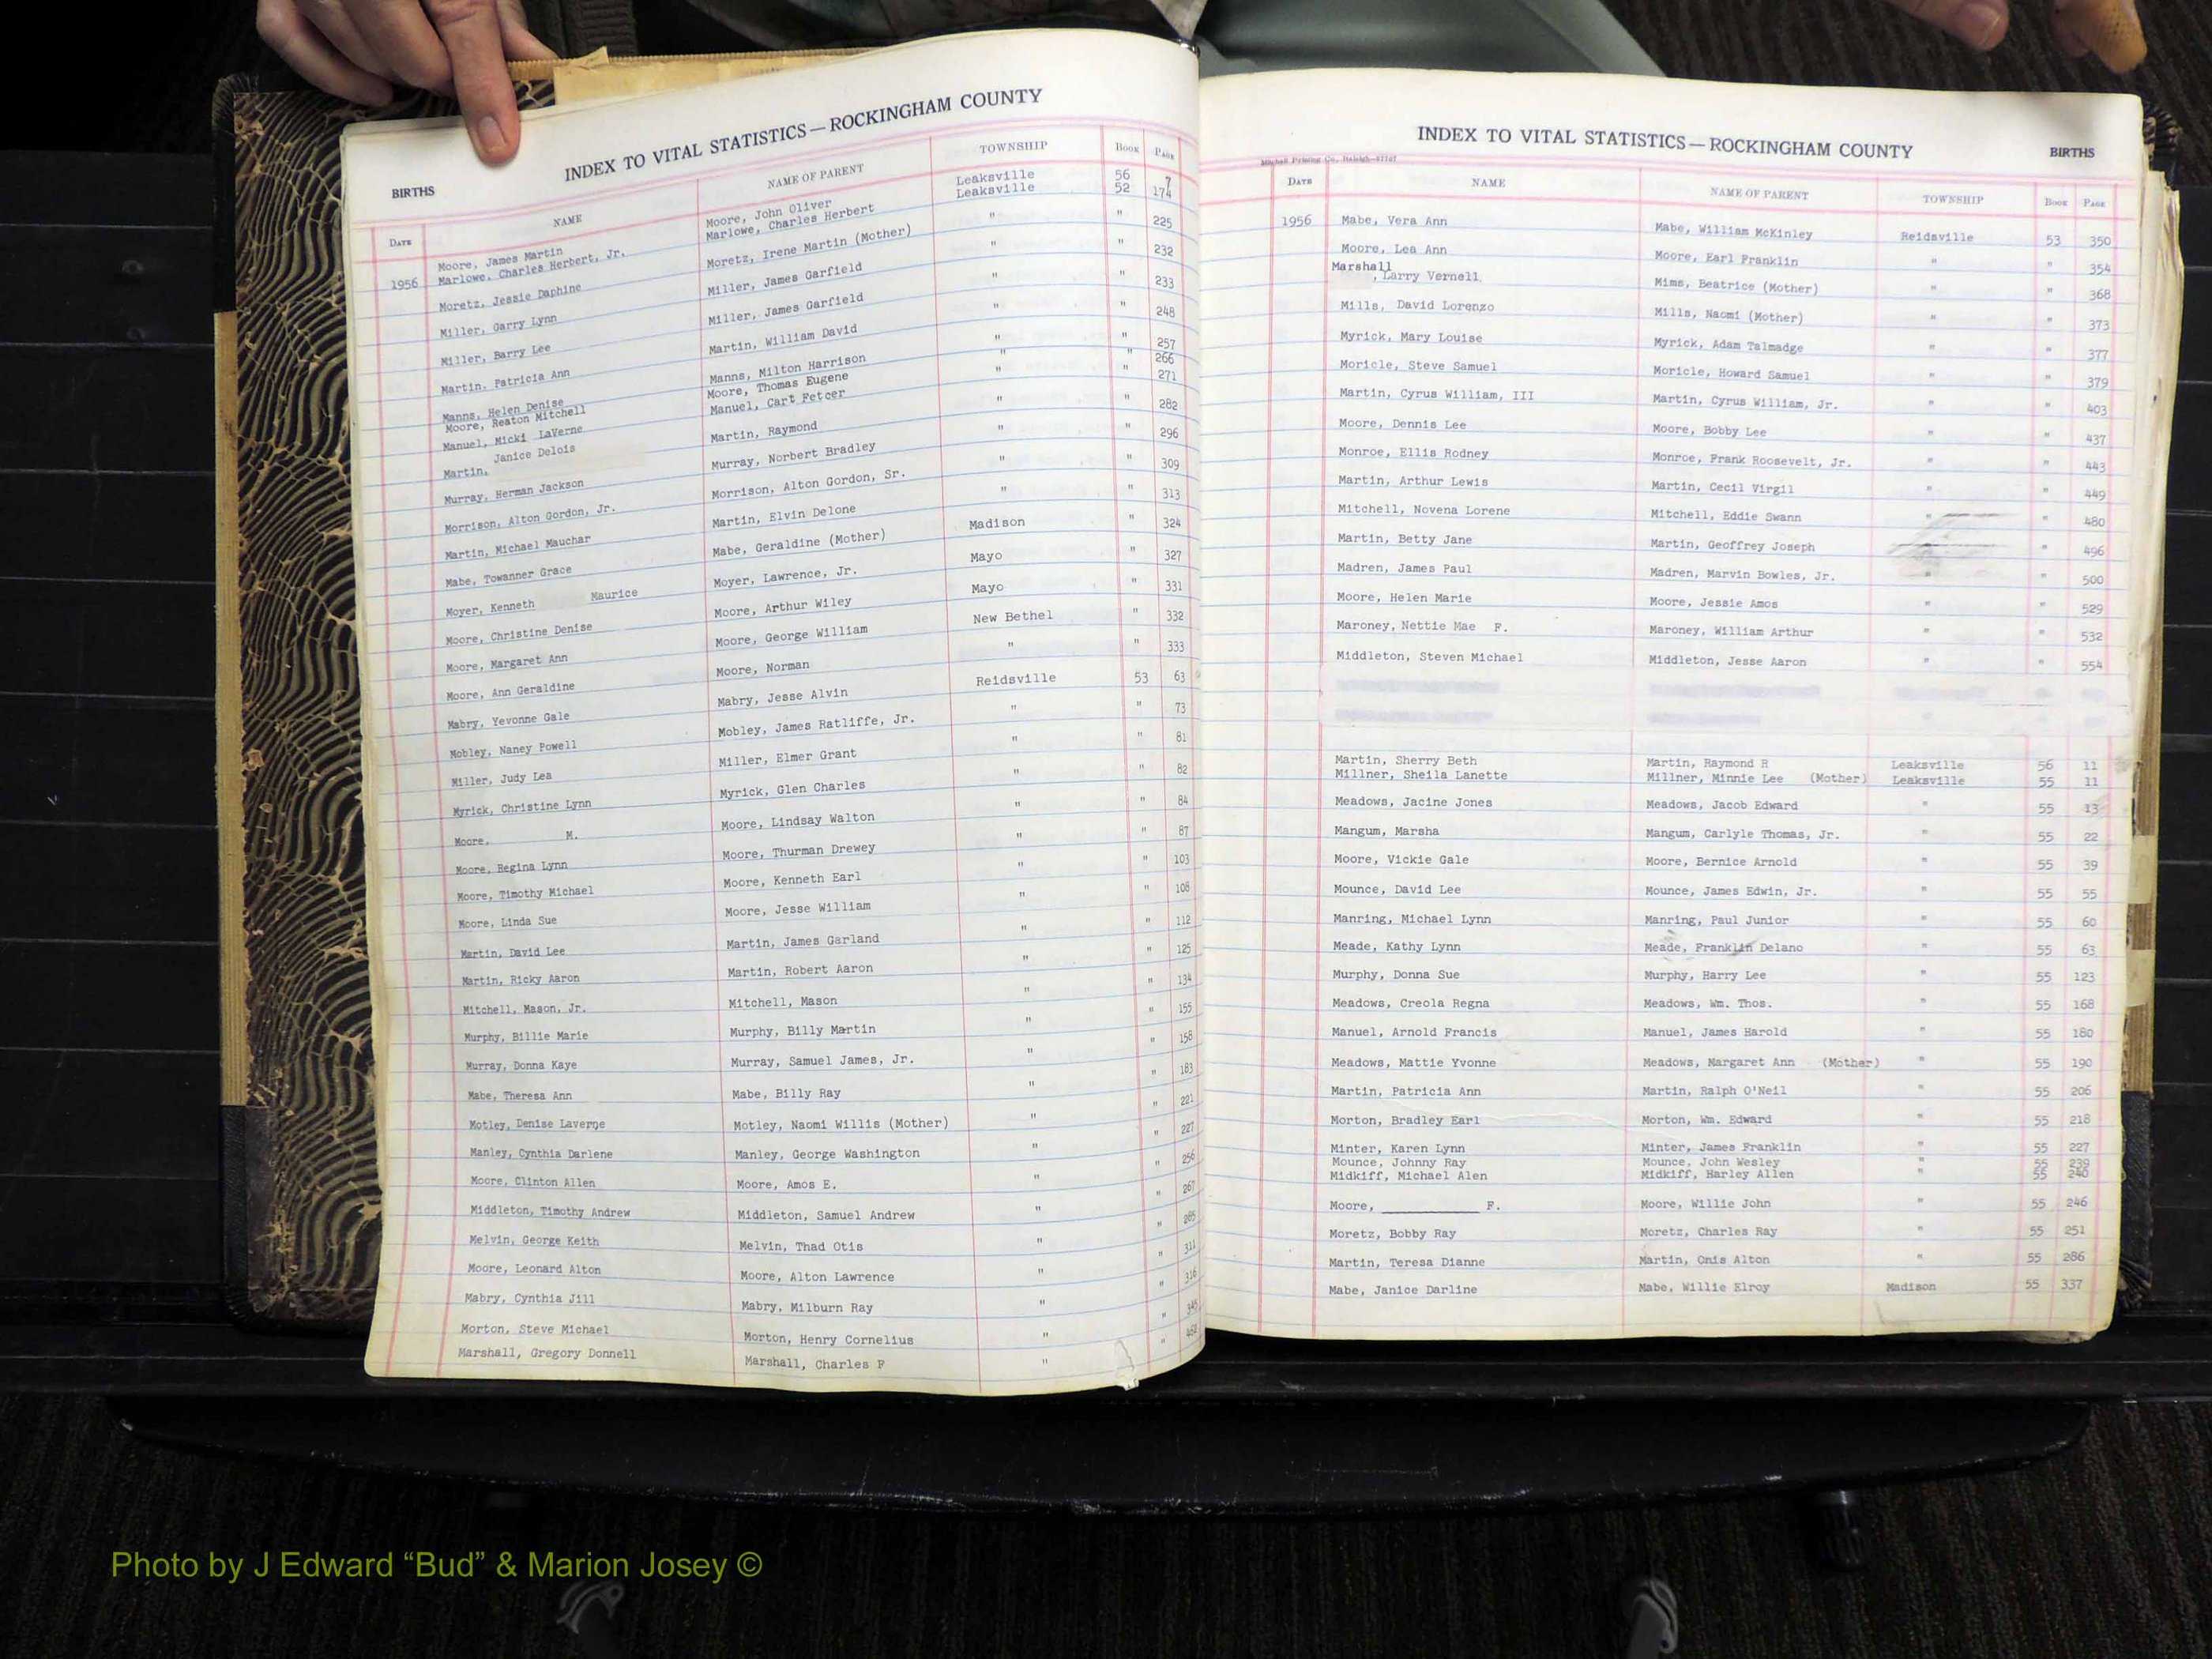 INDEX TO VITAL STATISTICS — ROCKINGHAM COUNTY
BIRTHS
DATE NAME NAME OF PARENT TOWNSHIP BOOK PAGE
Moore, James Martin Moore, John Oliver Leaksville 56 7
1956 Marlowe, Charles Herbert, Jr. Marlowe, Charles Herbert Leaksville 52 174
Moretz, Jessie Daphine Moretz, Irene Martin (Mother) " " 225
Miller, Garry Lynn Miller, James Garfield " " 232
Miller, Barry Lee Miller, James Garfield " " 233
Martin, Patricia Ann Martin, William David " " 248
Manns, Helen Denise Manns, Milton Harrison " " 257
Moore, Reaton Mitchell Moore, Thomas Eugene " " 266
Manuel, Micki LaVerne Manuel, Cart Fetcer " " 271
Martin, Janice Delois Martin, Raymond " " 282
Murray, Herman Jackson Murray, Norbert Bradley " " 296
Morrison, Alton Gordon, Jr. Morrison, Alton Gordon, Sr. " " 309
Martin, Michael Mauchar Martin, Elvin Delone " " 313
Mabe, Towanner Grace Mabe, Geraldine (Mother) Madison " 324
Moyer, Kenneth Maurice Moyer, Lawrence, Jr. Mayo " 327
Moore, Christine Denise Moore, Arthur Wiley Mayo " 331
Moore, Margaret Ann Moore, George William New Bethel " 332
Moore, Ann Geraldine Moore, Norman " " 333
Mabry, Yevonne Gale Mabry, Jesse Alvin Reidsville 53 63
Mobley, Naney Powell Mobley, James Ratliffe, Jr. " " 73
Miller, Judy Lea Miller, Elmer Grant " " 81
Myrick, Christine Lynn Myrick, Glen Charles " " 82
Moore, M. Moore, Lindsay Walton " " 84
Moore, Regina Lynn Moore, Thurman Drewey " " 87
Moore, Timothy Michael Moore, Kenneth Earl " " 103
Moore, Linda Sue Moore, Jesse William " " 108
Martin, David Lee Martin, James Garland " " 112
Martin, Ricky Aaron Martin, Robert Aaron " " 125
Mitchell, Mason, Jr. Mitchell, Mason " " 134
Murphy, Billie Marie Murphy, Billy Martin " " 155
Murray, Donna Kaye Murray, Samuel James, Jr. " " 158
Mabe, Theresa Ann Mabe, Billy Ray " " 183
Motley, Denise Laverne Motley, Naomi Willis (Mother) " " 221
Manley, Cynthia Darlene Manley, George Washington " " 227
Moore, Clinton Allen Moore, Amos E. " " 256
Middleton, Timothy Andrew Middleton, Samuel Andrew " " 267
Melvin, George Keith Melvin, Thad Otis " "
Moore, Leonard Alton Moore, Alton Lawrence " " 311
Mabry, Cynthia Jill Mabry, Milburn Ray " " 316
Morton, Steve Michael Morton, Henry Cornelius " "
Marshall, Gregory Donnell Marshall, Charles F " "
INDEX TO VITAL STATISTICS — ROCKINGHAM COUNTY
BIRTHS
Mitchell Printing Co., Raleigh
DATE NAME NAME OF PARENT TOWNSHIP BOOK PAGE
1956 Mabe, Vera Ann Mabe, William McKinley Reidsville 53 350
Moore, Lea Ann Moore, Earl Franklin " " 354
Marshall, Larry Vernell Mims, Beatrice (Mother) " " 368
Mills, David Lorenzo Mills, Naomi (Mother) " " 373
Myrick, Mary Louise Myrick, Adam Talmadge " " 377
Moricle, Steve Samuel Moricle, Howard Samuel " " 379
Martin, Cyrus William, III Martin, Cyrus William, Jr. " " 403
Moore, Dennis Lee Moore, Bobby Lee " " 437
Monroe, Ellis Rodney Monroe, Frank Roosevelt, Jr. " " 443
Martin, Arthur Lewis Martin, Cecil Virgil " " 449
Mitchell, Novena Lorene Mitchell, Eddie Swann " " 480
Martin, Betty Jane Martin, Geoffrey Joseph " 496
Madren, James Paul Madren, Marvin Bowles, Jr. " " 500
Moore, Helen Marie Moore, Jessie Amos " " 529
Maroney, Nettie Mae F. Maroney, William Arthur " " 532
Middleton, Steven Michael Middleton, Jesse Aaron " " 554
Martin, Sherry Beth Martin, Raymond R Leaksville 56 11
Millner, Sheila Lanette Millner, Minnie Lee (Mother) Leaksville 55 11
Meadows, Jacine Jones Meadows, Jacob Edward " 55 13
Mangum, Marsha Mangum, Carlyle Thomas, Jr. " 55 22
Moore, Vickie Gale Moore, Bernice Arnold " 55 39
Mounce, David Lee Mounce, James Edwin, Jr. " 55 55
Manring, Michael Lynn Manring, Paul Junior " 55 60
Meade, Kathy Lynn Meade, Franklin Delano " 55 63
Murphy, Donna Sue Murphy, Harry Lee " 55 123
Meadows, Creola Regna Meadows, Wm. Thos. " 55 168
Manuel, Arnold Francis Manuel, James Harold " 55 180
Meadows, Mattie Yvonne Meadows, Margaret Ann (Mother) " 55 190
Martin, Patricia Ann Martin, Ralph O'Neil " 55 206
Morton, Bradley Earl Morton, Wm. Edward " 55 218
Minter, Karen Lynn Minter, James Franklin " 55 227
Mounce, Johnny Ray Mounce, John Wesley " 55 239
Midkiff, Michael Alen Midkiff, Harley Allen " 55 240
Moore, ____________ F. Moore, Willie John " 55 246
Moretz, Bobby Ray Moretz, Charles Ray " 55 251
Martin, Teresa Dianne Martin, Onis Alton " 55 286
Mabe, Janice Darline Mabe, Willie Elroy Madison 55 337
Photo by J Edward “Bud” & Marion Josey ©